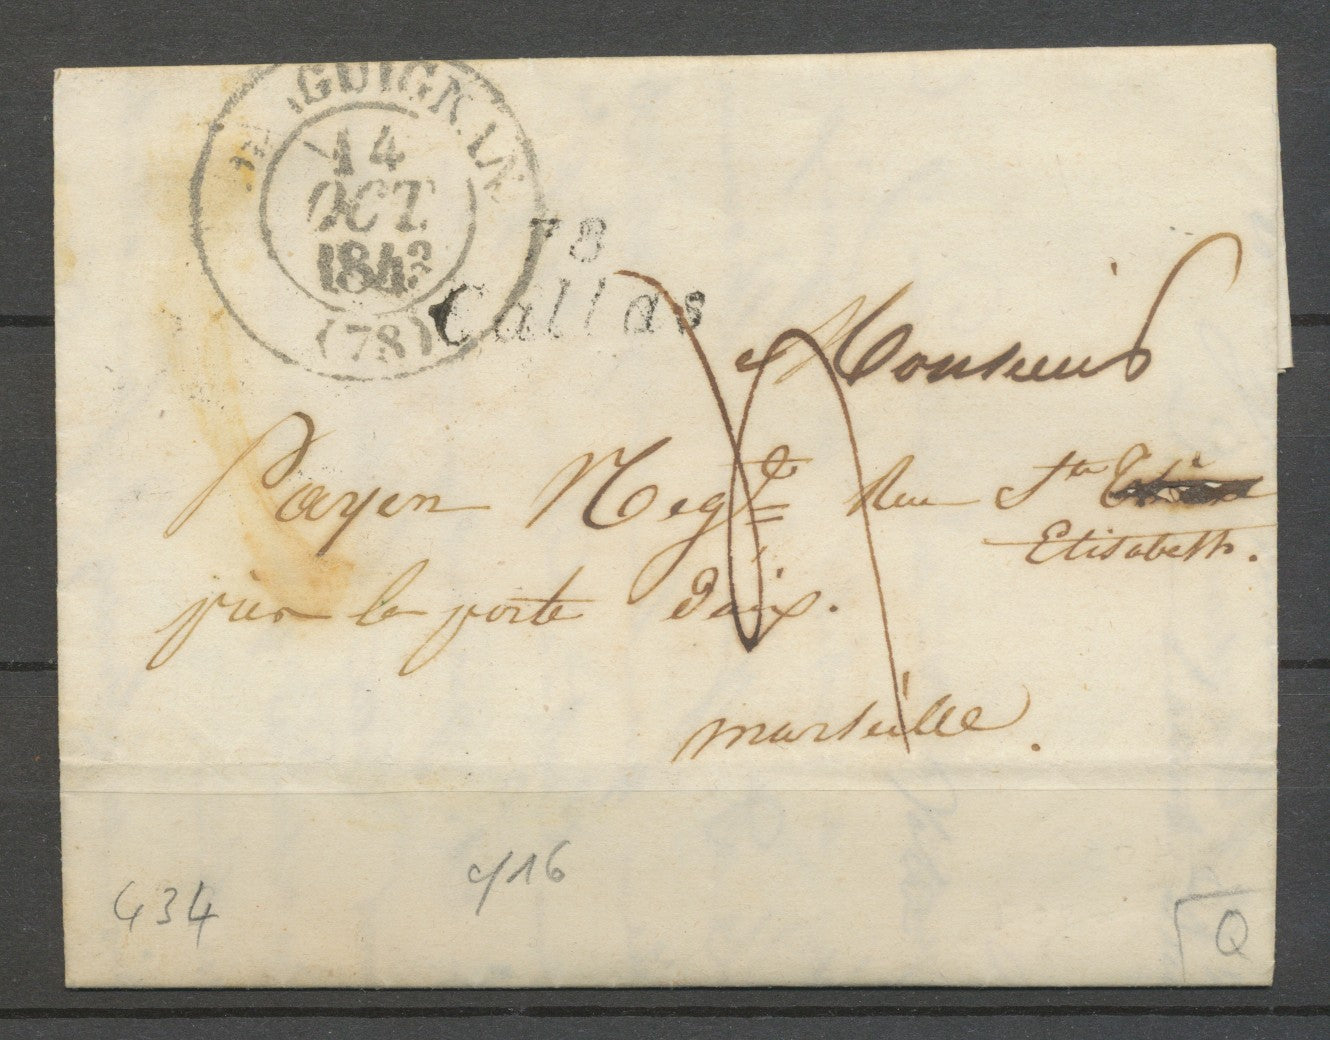 DRAGUIGNAN
14
OCT.
1843
(78)
78
Callas
Monsieur
Payen Negt. Rue Ste
Elisabeth.
près la porte d'aix.
marseille.
434
c/16
Q